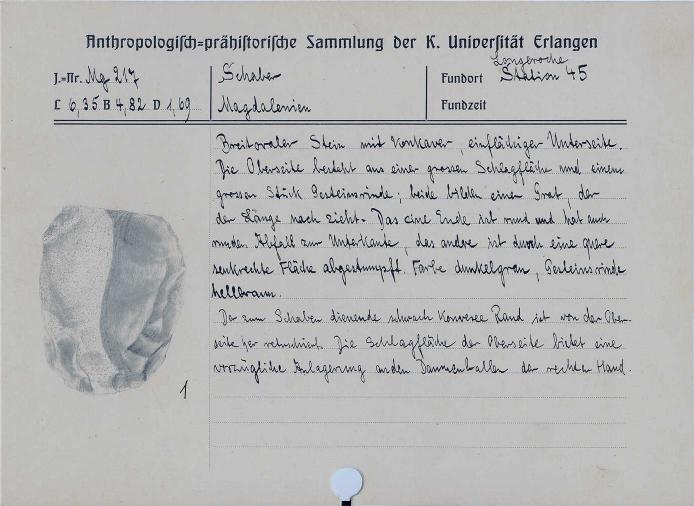 Anthropologisch=prähistorische Sammlung der K. Universität Erlangen
J.=Nr. Mg 217
Schaber
Fundort Longeroche Station 45
L 6,35 B 4,82 D 1,69
Magdalenien
Fundzeit
Breitovaler Stein mit konkaver, einflächiger Unterseite.
Die Oberseite besteht aus einer grossen Schlagfläche und einem
grossen Stück Gesteinsrinde; beide bilden einen Grat, der
der Länge nach zieht. Das eine Ende ist rund und hat auch
runden Abfall zur Unterkante, das andre ist durch eine quere
senkrechte Fläche abgestumpft. Farbe dunkelgrau, Gesteinsrinde
hellbraun.
Der zum Schaben dienende schwach konvexe Rand ist von der Ober-
seite her retuschiert. Die Schlagfläche der Oberseite bietet eine
vorzügliche Anlagerung an den Daumenballen der rechten Hand.
1